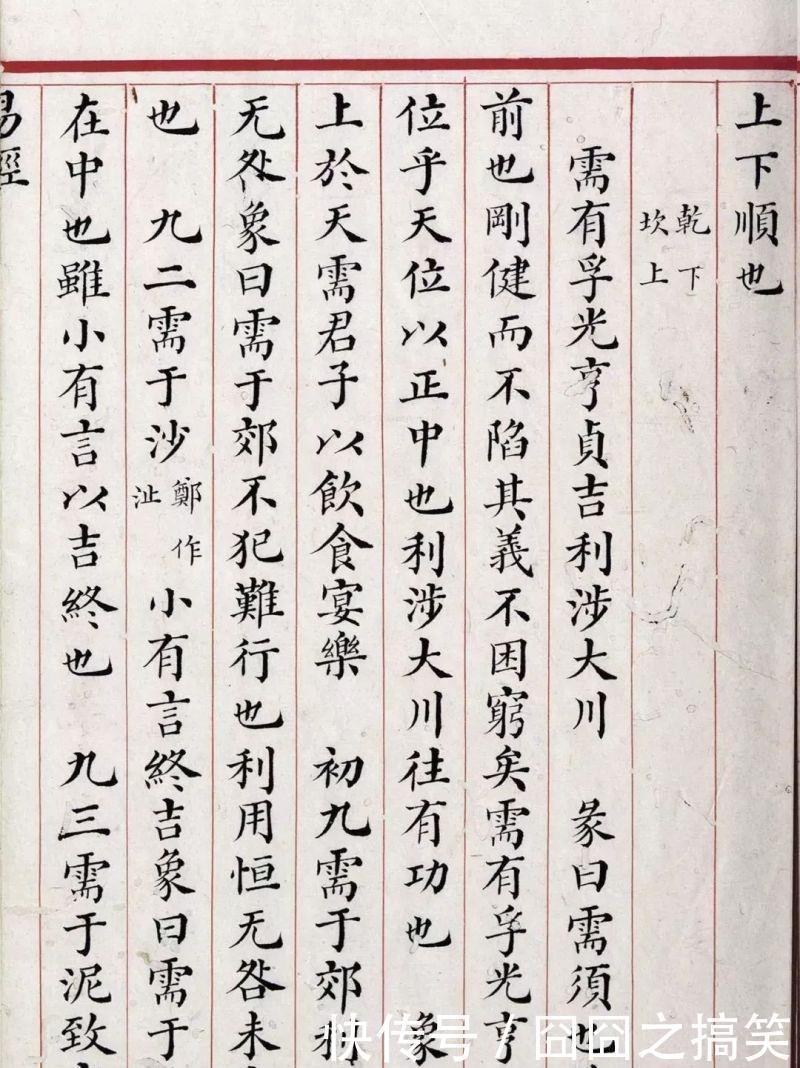 上下順也
乾下
坎上
需有孚光亨貞吉利涉大川　彖曰需須也
前也剛健而不陷其義不困窮矣需有孚光亨
位乎天位以正中也利涉大川往有功也　象
上於天需君子以飲食宴樂　初九需于郊利
无咎象曰需于郊不犯難行也利用恒无咎未
也　九二需于沙鄭作沚小有言終吉象曰需于
在中也雖小有言以吉終也　九三需于泥致
易經
快传号/囧囧之搞笑